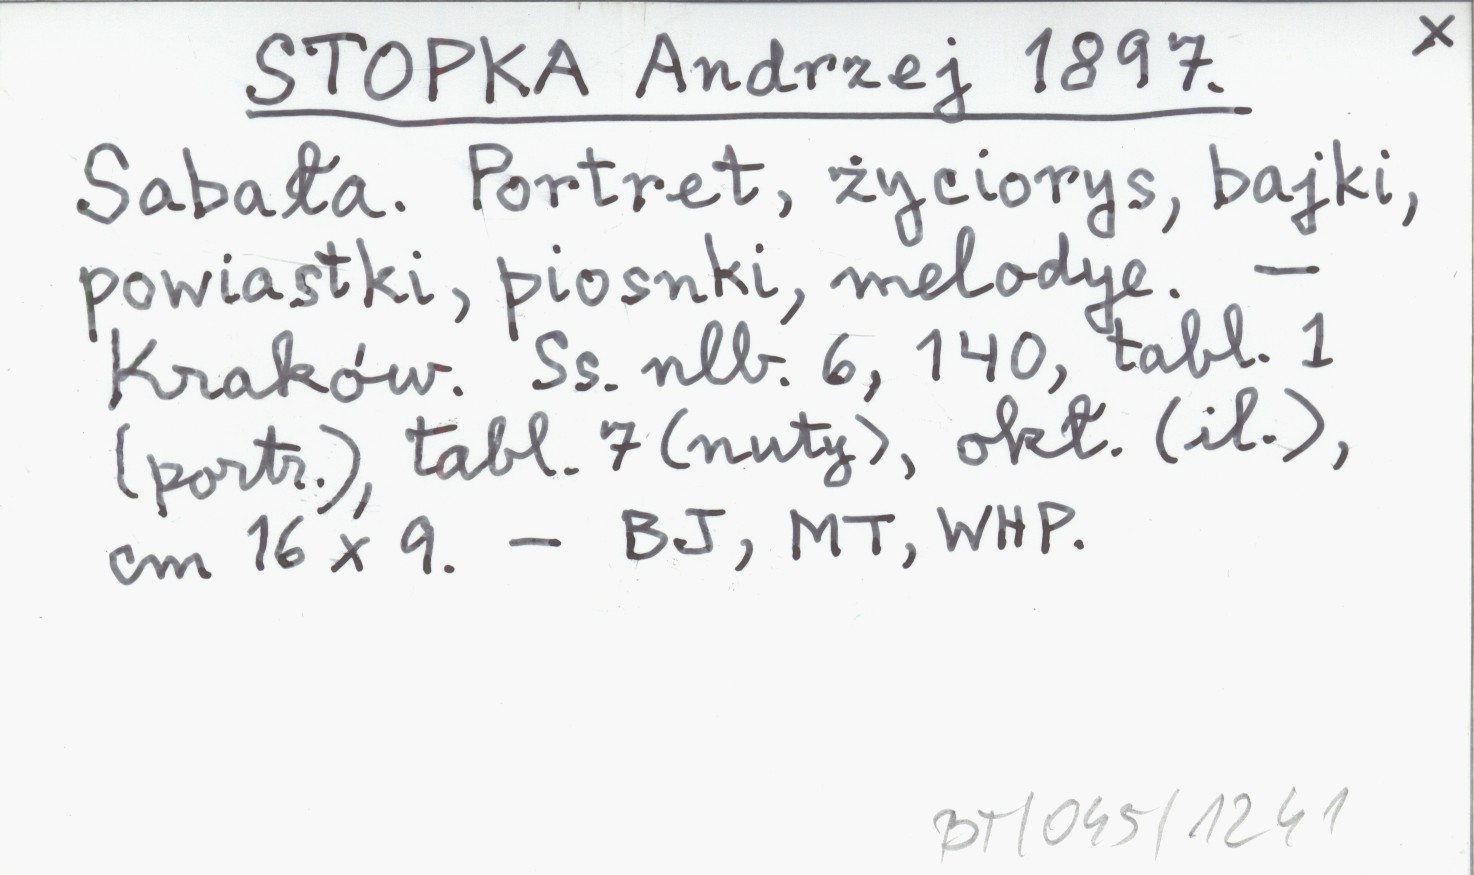 STOPKA Andrzej 1897. x
Sabała. Portret, życiorys, bajki,
powiastki, piosnki, melodye. —
Kraków. Ss. nlb. 6, 140, tabl. 1
(portr.), tabl. 7 (nuty), okł. (il.),
cm 16 x 9. — BJ, MT, WHP.
BT/045/1241